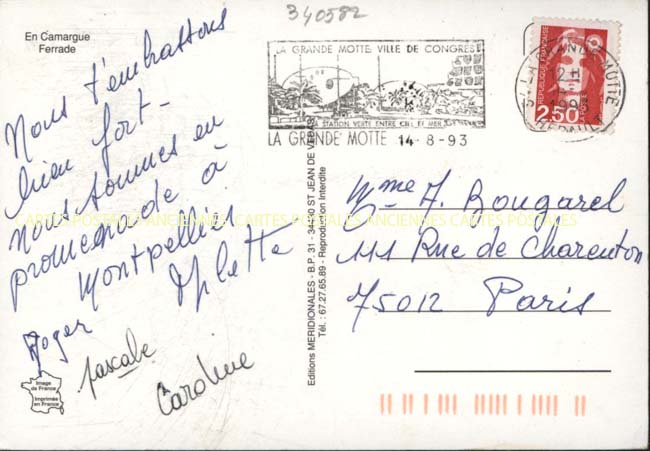 340582
En Camargue
Ferrade
Nous t'embrassons
bien fort -
nous sommes en
promenade à
Montpellier
Roger
Pascale
Caroline
Image
de France
Imprimée
en France
Editions MERIDIONALES - B.P. 31 - 34430 ST JEAN DE VEDAS
Tél.: 67.27.65.89 - Reproduction Interdite
LA GRANDE MOTTE VILLE DE CONGRES
STATION VERTE ENTRE CIEL ET MER
LA GRANDE MOTTE 14-8-93
LA GRANDE MOTTE
12 H
1993
HERAULT
REPUBLIQUE FRANÇAISE
2,50
Mme A. Bougarel
111 Rue de Charenton
75012 Paris
CARTES POSTALES ANCIENNES CARTES POSTALES ANCIENNES CARTES POSTALES